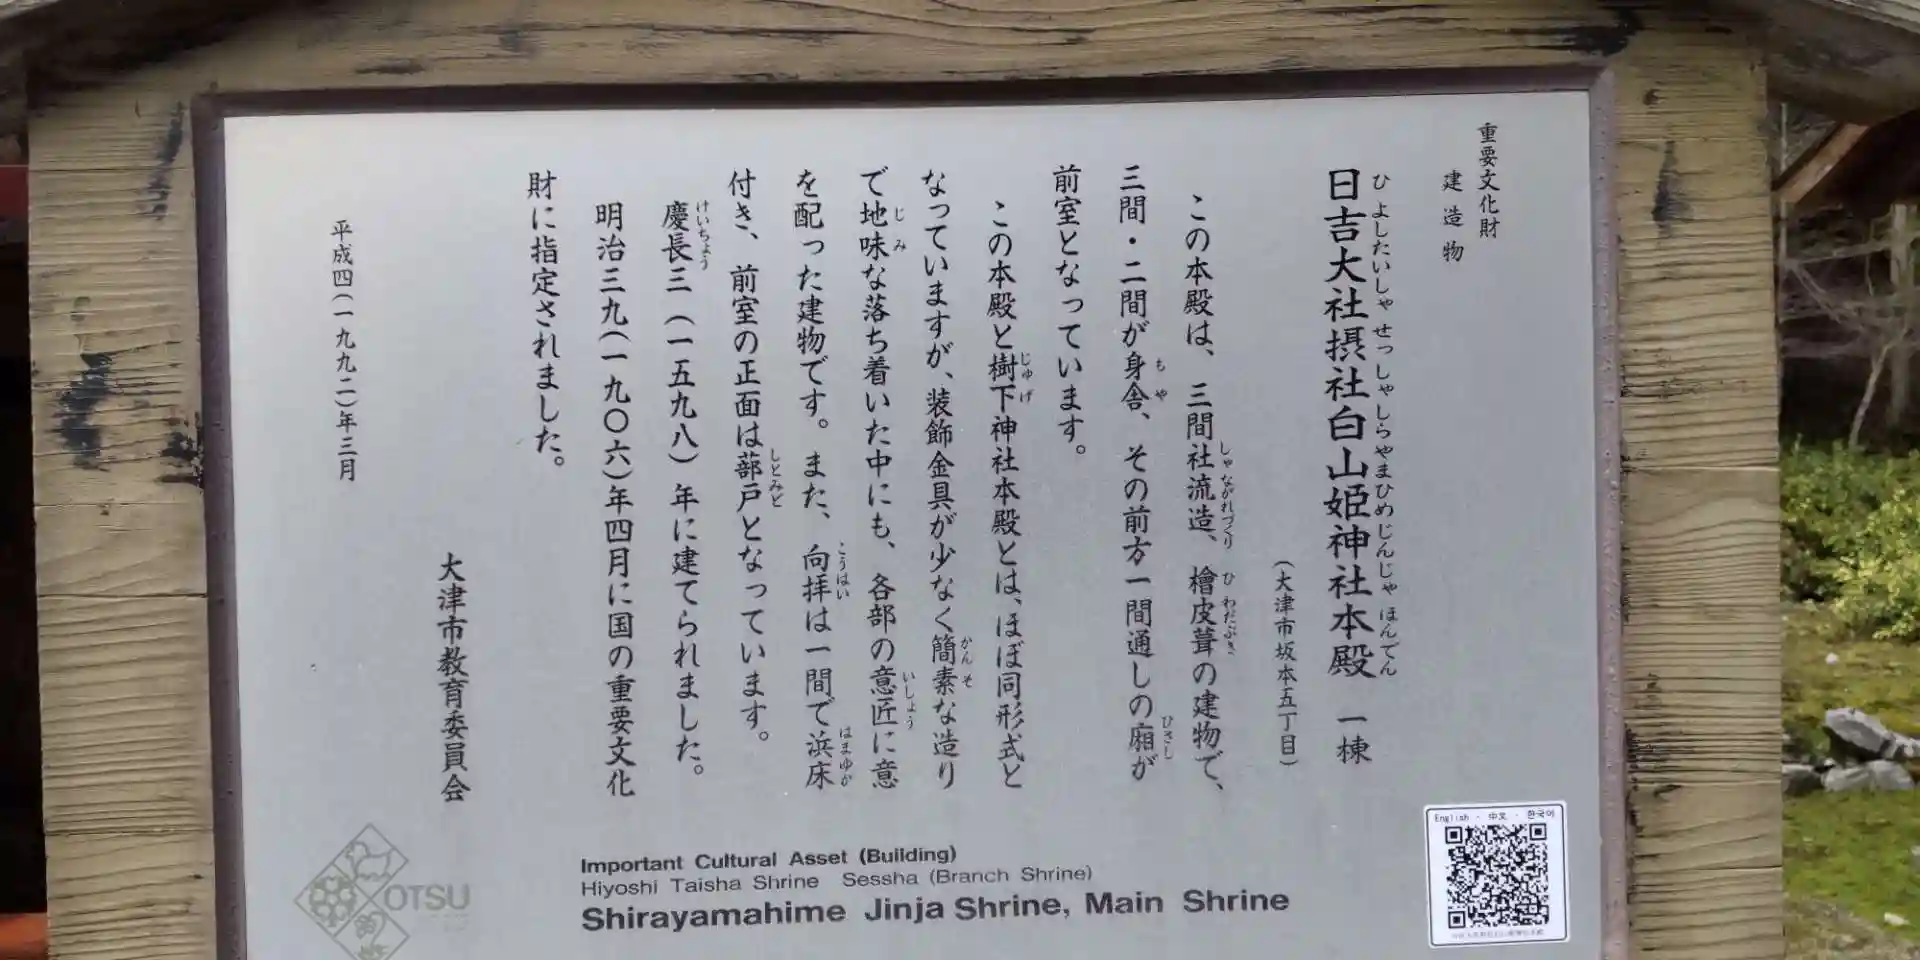 重要文化財
建造物
日吉大社摂社白山姫神社本殿 一棟
ひよしたいしゃ せっしゃしらやまひめじんじゃ ほんでん
(大津市坂本五丁目)
この本殿は、三間社流造、檜皮葺の建物で、
しゃながれづくり ひわだぶき
三間・二間が身舎、その前方一間通しの廂が
もや ひさし
前室となっています。
この本殿と樹下神社本殿とは、ほぼ同形式と
じゅげ
なっていますが、装飾金具が少なく簡素な造り
かんそ
で地味な落ち着いた中にも、各部の意匠に意
じみ いしょう
を配った建物です。また、向拝は一間で浜床
こうはい はまゆか
付き、前室の正面は蔀戸となっています。
しとみど
慶長三(一五九八)年に建てられました。
けいちょう
明治三九(一九〇六)年四月に国の重要文化
財に指定されました。
平成四(一九九二)年三月
大津市教育委員会
Important Cultural Asset (Building)
Hiyoshi Taisha Shrine Sessha (Branch Shrine)
Shirayamahime Jinja Shrine, Main Shrine
OTSU
English · 中文 · 한국어